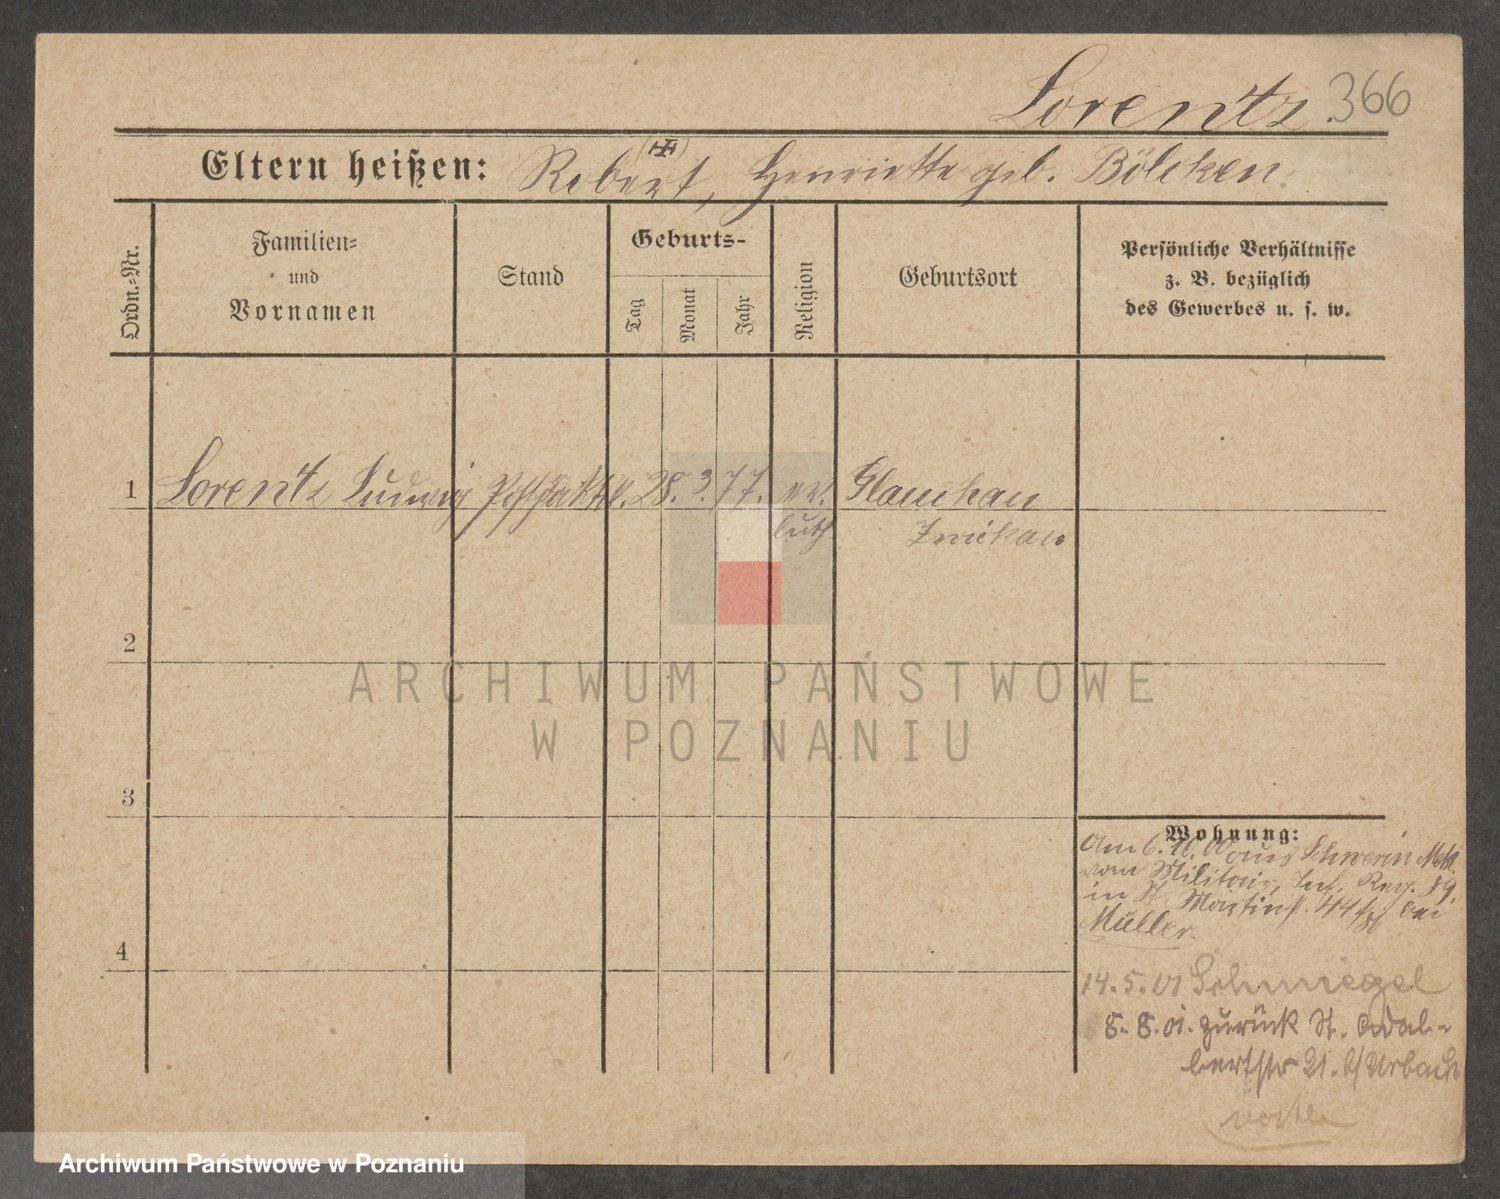 Lorentz. 366
Eltern heißen: Robert (✠), Henriette geb. Bölcken.
Ordn.-Nr.
Familien-
und
Vornamen
Stand
Geburts-
Tag
Monat
Jahr
Religion
Geburtsort
Persönliche Verhältnisse
z. B. bezüglich
des Gewerbes u. s. w.
1 Lorentz Ludwig 28. 3. 77. ev. Glauchau
luth Zwickau
2
ARCHIWUM PAŃSTWOWE
W POZNANIU
3
Wohnung:
Am 6. 10. 00 aus Schwerin Meckl.
vom Militair, Inf. Reg. 89.
in St. Martinst. 44 bei
Müller.
4
14. 5. 01 Schmiegel
8. 8. 01. zurück St. Adal-
bertstr 21. b/ Urbach
Archiwum Państwowe w Poznaniu